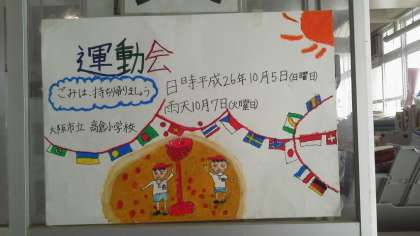 運動会
ごみは、持ち帰りましょう
日時平成26年10月5日(日曜日)
雨天10月7日(火曜日)
大阪市立 高倉小学校